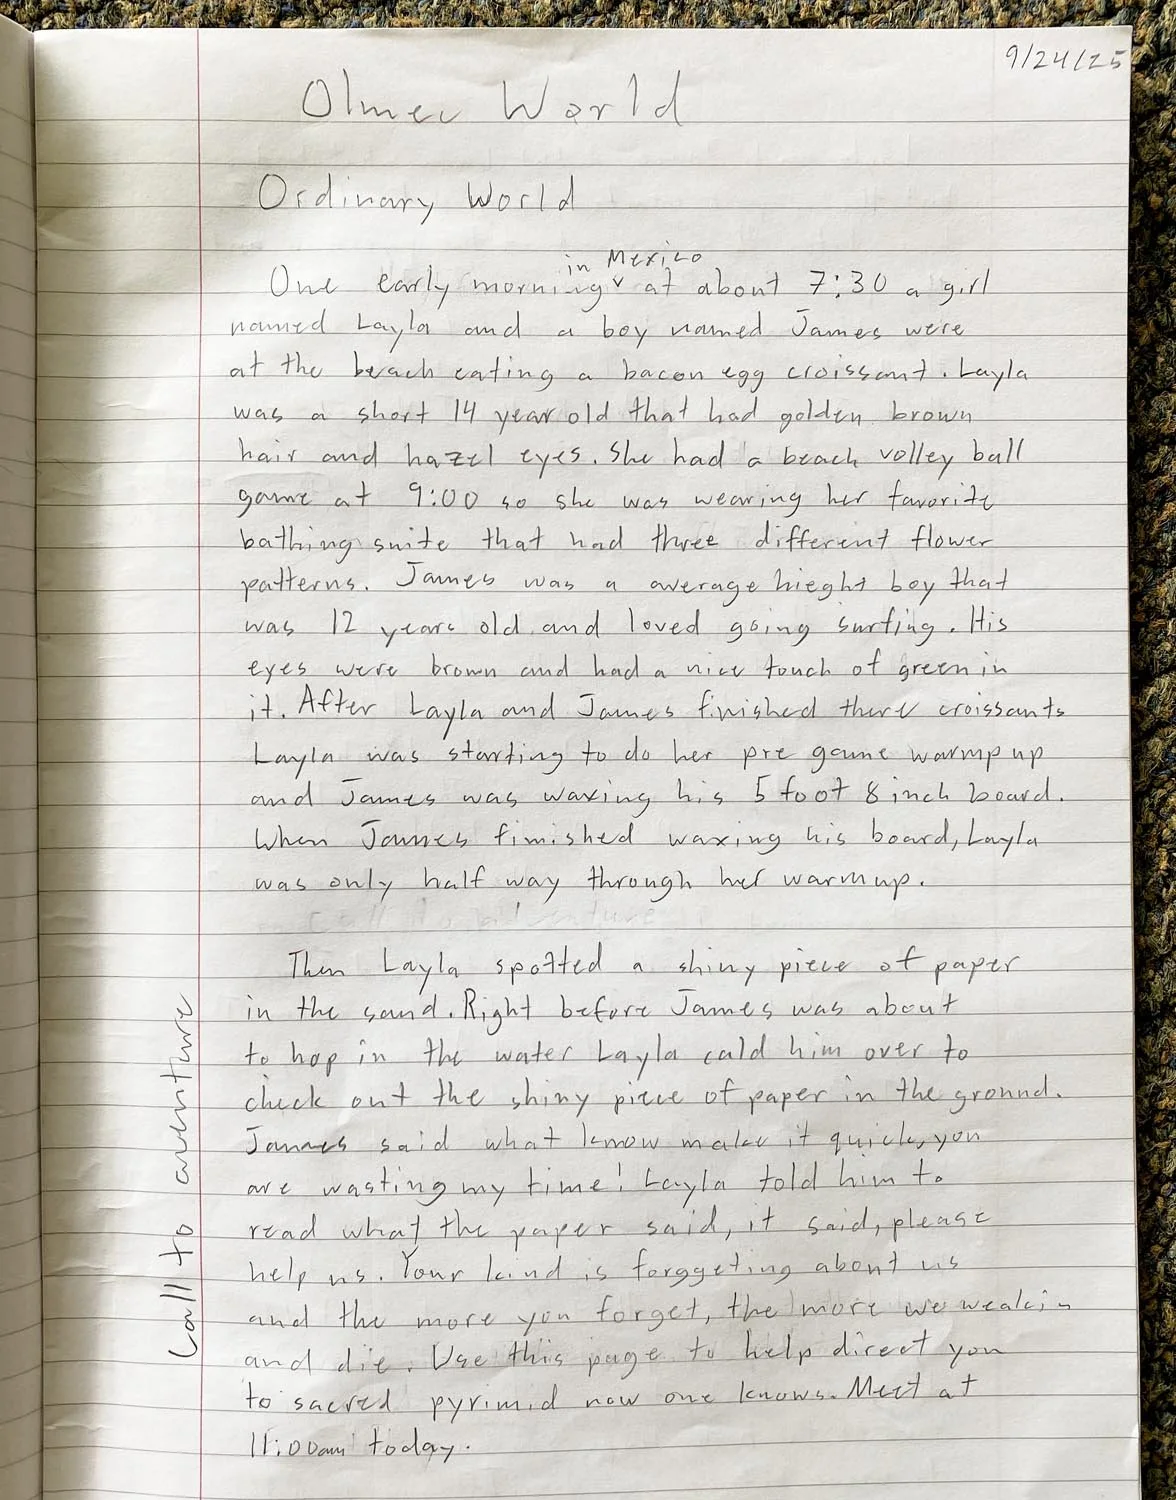 9/24/25
Olmec World
Ordinary World
in Mexico
One early morning ˅ at about 7:30 a girl
named Layla and a boy named James were
at the beach eating a bacon egg croissant. Layla
was a short 14 year old that had golden brown
hair and hazel eyes. She had a beach volley ball
game at 9:00 so she was wearing her favorite
bathing suite that had three different flower
patterns. James was a average hieght boy that
was 12 years old and loved going surfing. His
eyes were brown and had a nice touch of green in
it. After Layla and James finished there croissants
Layla was starting to do her pre game warmp up
and James was waxing his 5 foot 8 inch board.
When James finished waxing his board, Layla
was only half way through her warmup.
Call to adventure
Then Layla spotted a shiny piece of paper
in the sand. Right before James was about
to hop in the water Layla cald him over to
check out the shiny piece of paper in the ground.
James said what know make it quick, you
are wasting my time! Layla told him to
read what the paper said, it said, please
help us. Your kind is forggeting about us
and the more you forget, the more we weakin
and die. Use this page to help direct you
to sacred pyrimid now one knows. Meet at
11:00am today.
Call to aventure